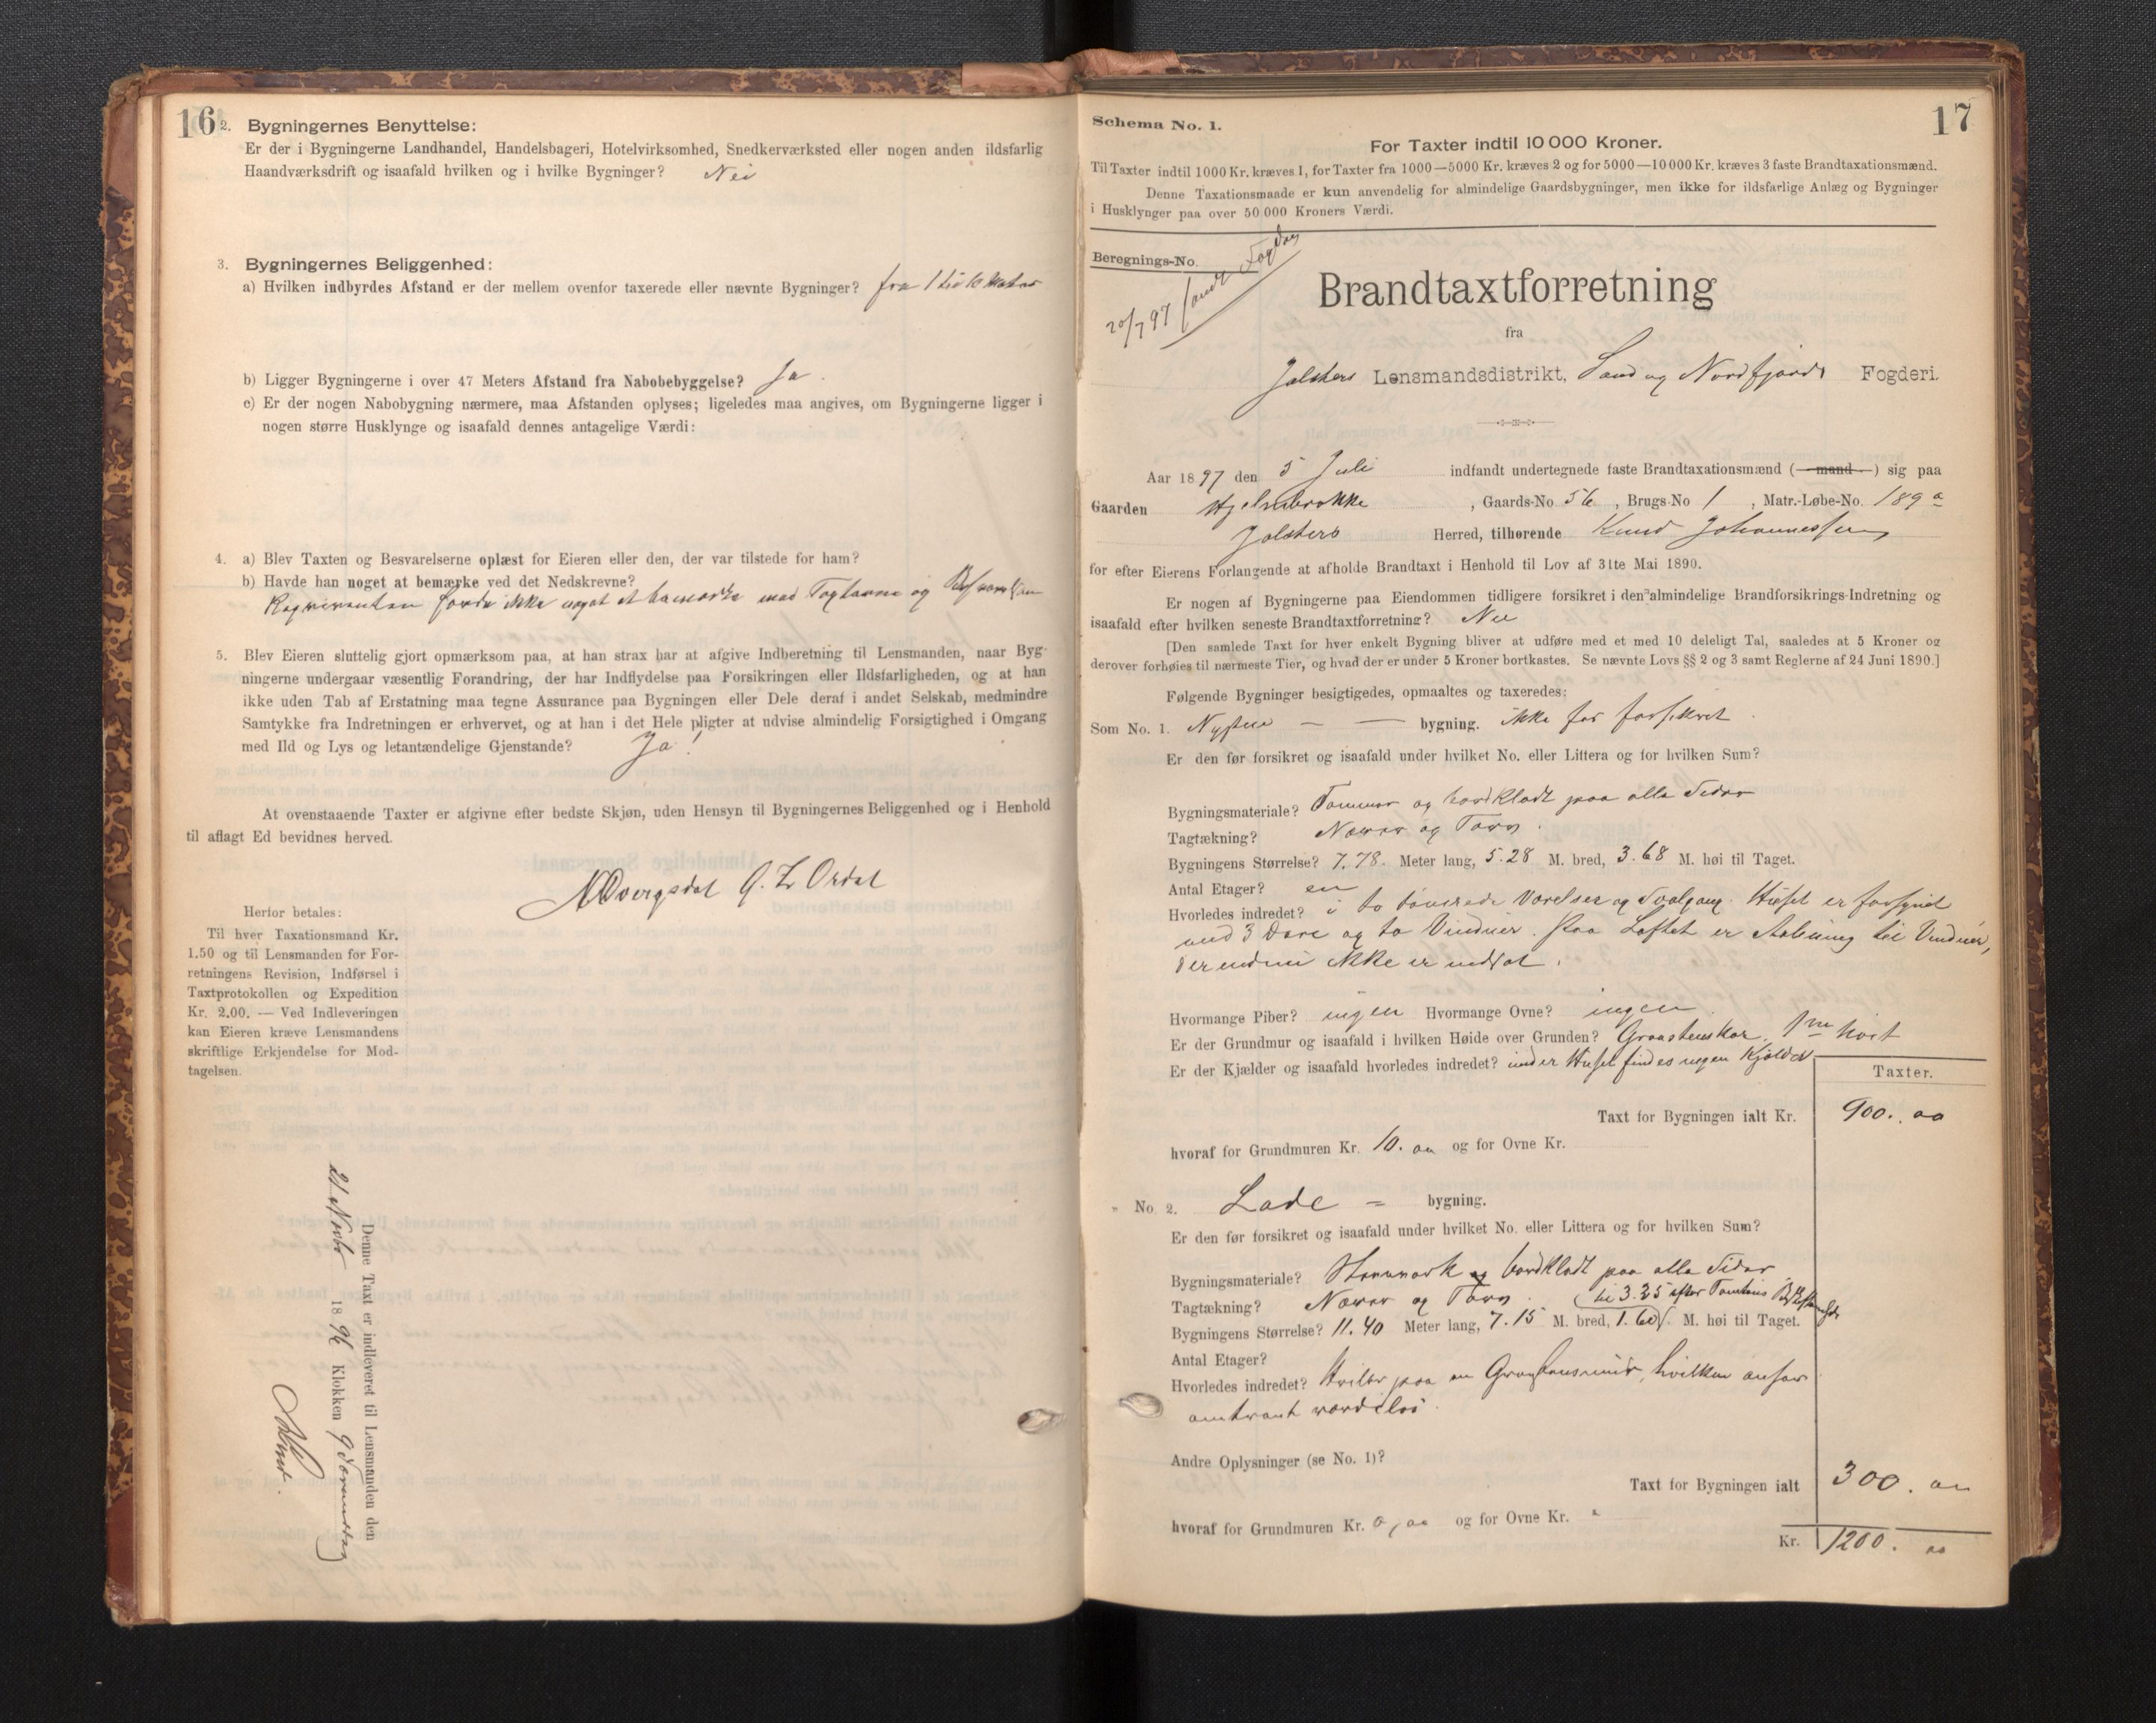 16
2. Bygningernes Benyttelse:
Er der i Bygningerne Landhandel, Handelsbageri, Hotelvirksomhed, Snedkerværksted eller nogen anden ildsfarlig
Haandværksdrift og isaafald hvilken og i hvilke Bygninger? Nei
3. Bygningernes Beliggenhed:
a) Hvilken indbyrdes Afstand er der mellem ovenfor taxerede eller nævnte Bygninger? fra 1 til 10 Meter
b) Ligger Bygningerne i over 47 Meters Afstand fra Nabobebyggelse? Ja.
c) Er der nogen Nabobygning nærmere, maa Afstanden oplyses; ligeledes maa angives, om Bygningerne ligger i
nogen større Husklynge og isaafald dennes antagelige Værdi:
4. a) Blev Taxten og Besvarelserne oplæst for Eieren eller den, der var tilstede for ham?
b) Havde han noget at bemærke ved det Nedskrevne?
Reqvirenten havde ikke noget at bemærke med Taxterne og
5. Blev Eieren sluttelig gjort opmærksom paa, at han strax har at afgive Indberetning til Lensmanden, naar Byg-
ningerne undergaar væsentlig Forandring, der har Indflydelse paa Forsikringen eller Ildsfarligheden, og at han
ikke uden Tab af Erstatning maa tegne Assurance paa Bygningen eller Dele deraf i andet Selskab, medmindre
Samtykke fra Indretningen er erhvervet, og at han i det Hele pligter at udvise almindelig Forsigtighed i Omgang
med Ild og Lys og letantændelige Gjenstande? Ja!
At ovenstaaende Taxter er afgivne efter bedste Skjøn, uden Hensyn til Bygningernes Beliggenhed og i Henhold
til aflagt Ed bevidnes herved.
Ordal
Herfor betales:
Til hver Taxationsmand Kr.
1.50 og til Lensmanden for For-
retningens Revision, Indførsel i
Taxtprotokollen og Expedition
Kr. 2.00. — Ved Indleveringen
kan Eieren kræve Lensmandens
skriftlige Erkjendelse for Mod-
tagelsen.
Denne Taxt er indleveret til Lensmanden den
21 Novbr 1896 Klokken 9
17
Schema No. 1.
For Taxter indtil 10 000 Kroner.
Til Taxter indtil 1000 Kr. kræves 1, for Taxter fra 1000—5000 Kr. kræves 2 og for 5000—10000 Kr. kræves 3 faste Brandtaxationsmænd.
Denne Taxationsmaade er kun anvendelig for almindelige Gaardsbygninger, men ikke for ildsfarlige Anlæg og Bygninger
i Husklynger paa over 50 000 Kroners Værdi.
Beregnings-No.
20/7 97 sendt Fogden
Brandtaxtforretning
fra
Jølsters Lensmandsdistrikt, Sønd og Nordfjords Fogderi.
Aar 1897 den 5 Juli indfandt undertegnede faste Brandtaxationsmænd (mand) sig paa
Gaarden Hjelmbrekke, Gaards-No. 56, Brugs-No 1, Matr.-Løbe-No. 189 a
Jølsters Herred, tilhørende Knud Johannessen
for efter Eierens Forlangende at afholde Brandtaxt i Henhold til Lov af 31te Mai 1890.
Er nogen af Bygningerne paa Eiendommen tidligere forsikret i den almindelige Brandforsikrings-Indretning og
isaafald efter hvilken seneste Brandtaxtforretning? Nei
[Den samlede Taxt for hver enkelt Bygning bliver at udføre med et med 10 deleligt Tal, saaledes at 5 Kroner og
derover forhøies til nærmeste Tier, og hvad der er under 5 Kroner bortkastes. Se nævnte Lovs §§ 2 og 3 samt Reglerne af 24 Juni 1890.]
Følgende Bygninger besigtigedes, opmaaltes og taxeredes:
Som No. 1. bygning. ikke før forsikret
Er den før forsikret og isaafald under hvilket No. eller Littera og for hvilken Sum?
Bygningsmateriale? Tømmer og bordklædt paa alle Sider
Tagtækning? Næver og Torv.
Bygningens Størrelse? 7.78. Meter lang, 5.28 M. bred, 3.68 M. høi til Taget.
Antal Etager? en
Hvorledes indredet? i to tømrede Værelser og Svalgang. Huset er forsynet
med 3 Døre og to Vinduer. Paa Loftet er Aabning til Vinduer,
der endnu ikke er indsat.
Hvormange Piber? ingen Hvormange Ovne? ingen.
Er der Grundmur og isaafald i hvilken Høide over Grunden? Graastenskar, 1 m høit
Er der Kjælder og isaafald hvorledes indredet? under Huset findes ingen Kjælder
Taxter.
Taxt for Bygningen ialt Kr. 900. 00
hvoraf for Grundmuren Kr. 10. 00 og for Ovne Kr.
" No. 2. Lade = bygning.
Er den før forsikret og isaafald under hvilket No. eller Littera og for hvilken Sum?
Bygningsmateriale? Stavverk og bordklædt paa alle Sider
Tagtækning? Næver og Torv. til 3.35 efter Tomtens
Bygningens Størrelse? 11.40 Meter lang, 7.15 M. bred, 1.60 M. høi til Taget.
Antal Etager?
Hvorledes indredet? Hviler paa en Graastensmur, hvilken ansees
omtrent værdiløs.
Andre Oplysninger (se No. 1)?
Taxt for Bygningen ialt 300. 00
hvoraf for Grundmuren Kr. 0,00 og for Ovne Kr. "
Kr. 1200. 00